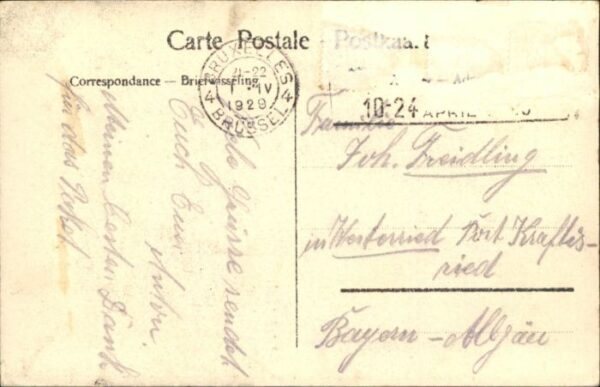 Carte Postale - Postkaart
Correspondance — Briefwisseling
BRUXELLES
21-22
IV
1929
BRUSSEL
4 4
10-24 APRIL
Viele Grüsse sendet
Euch Euer
Anton.
Meinen besten Dank
für das Paket
Familie
Joh. Freidling
in Westerried Post Kraftis-
ried
Bayern-Allgäu